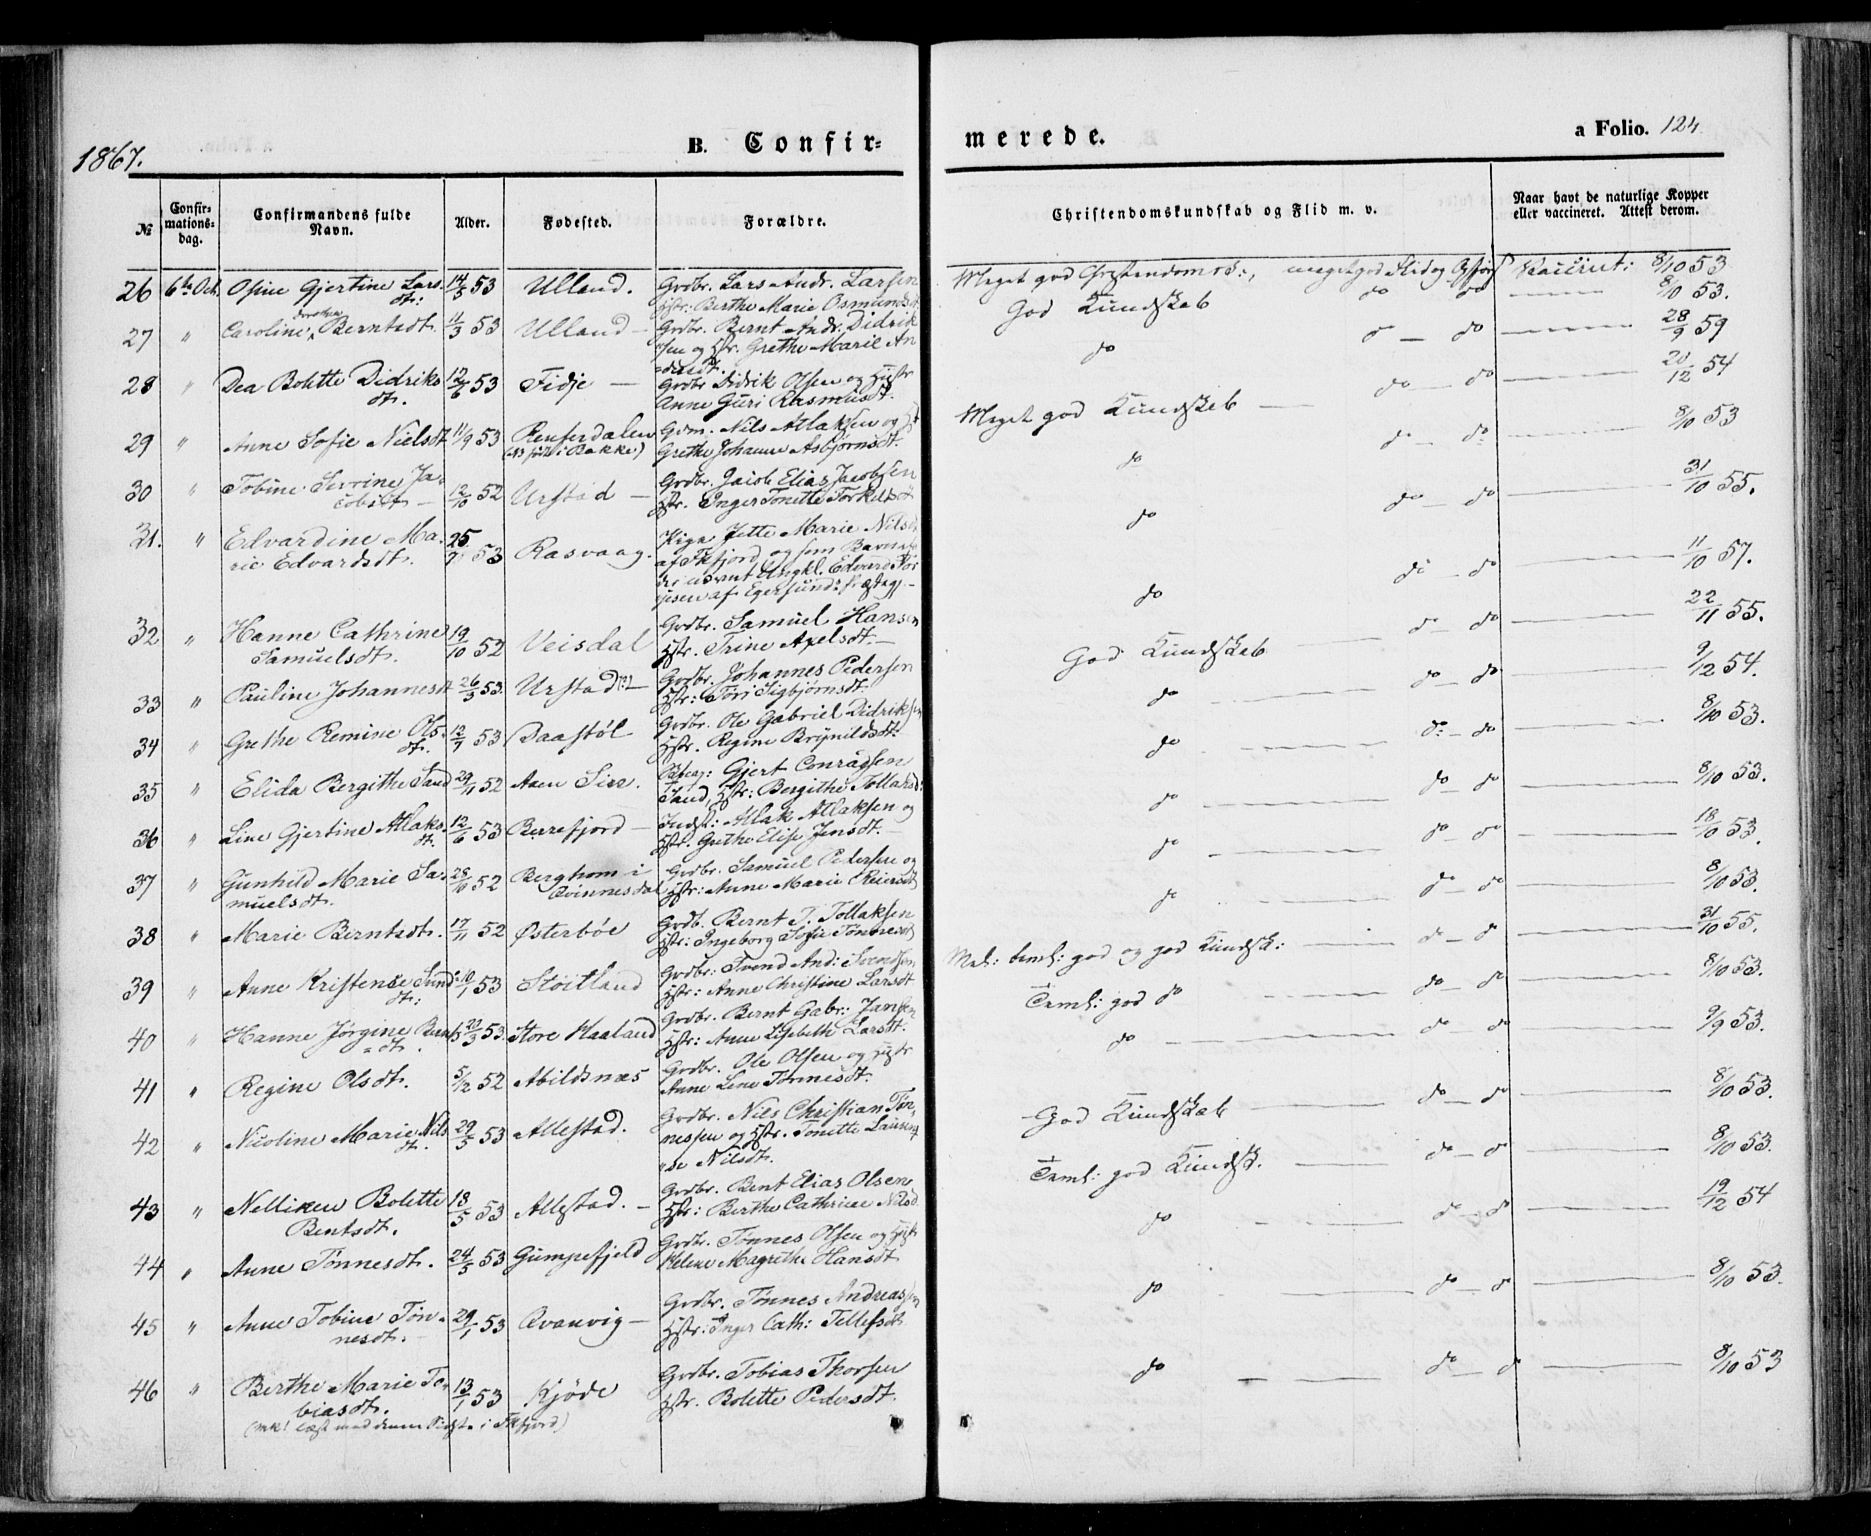 1867.
B. Confir-
merede.
a Folio. 124
№
Confir-
mations-
dag.
Confirmandens fulde
Navn.
Alder.
Fødested.
Forældre.
Christendomskundskab og Flid m. v.
Naar havt de naturlige Kopper
eller vaccineret. Attest derom.
26 6te Oct. Osine Gjertine Lars- 14/5 53 Ulland. Grdbr. Lars Andr. Larsen
dt: Hstr: Berthe Marie Osmundsdt
Meget god Christendomsk:, meget god Flid og Opførs Vaccinert: 8/10 53
27 " Caroline Dorothea Berntsdt. 11/3 53 Ulland — Grdbr. Bernt Andr. Didrik
sen og Hstr. Grethe Marie An
God Kundskab do do 8/10 53.
28 " Dea Bolette Didriks 12/6 53 Fidje — Grdbr. Didrik Olsen og Hustr
dt. Anne Guri Rasmusdt.
do d — do 28/9 59
29 " Anne Sofie Nielsdt 11/9 53 Gvm. Nils Atlaksen og
Grethe Johanne Asbjørnsdt.
Meget god Kundskab — do — do 20/12 54
30 " Tobine Serine Ja- 12/10 52 Urstad — Grdbr. Jacob Elias Jacobsen
cobsdt — Hstr. Inger Tonette Torkelsdt
do do — do 8/10 53
31. " Edvardine Ma- 25 53 Rasvaag. Pige Jette Marie Nilsd
rie Edvardsdt. af Fkfjord og som Barnef
Ungkl. Edvard
af Egersunds Præstegj. —
do do — do 31/10 55.
32 " Hanne Cathrine 19/10 52 Veisdal Grdbr. Samuel Hansen
Samuelsdt. Hstr. Trine Axelsdt. —
do do — do 11/10 57.
33 " Pauline Johannesdt 26/3 53. Urstad — Grdbr. Johannes Pedersen
Hstr: Tori Sigbjørnsdt.
God Kundskab do — do 22/11 55.
34 " Grethe Remine Ols- 12/7 53 Daastøl Grdbr. Ole Gabriel Didriksen
dt. Hstr. Regine Brynildsdt:
do do — do 9/12 54.
35 " Elida Bergithe Sand 29/11 52 Aaen Sire. Gjert Conradsen
Sand, Hstr: Bergithe Tollaksd:
do do — do 8/10 53.
36 " Line Gjertine Atlaks- 12/6 53 Berrefjord — Indst: Atlak Atlaksen og
dt. Hstr. Grethe Elise Jensdt. —
do do — do 8/10 53.
37 " Gunhild Marie Sa- 28/10 52 Berghom i Grdbr. Samuel Pedersen og
muelsdt. Qvinnesdal Hstr: Anne Marie Reiersdt
do do — do 18/10 53
38 " Marie Berntsdt. 17/11 52 Østerbøe Grdb. Bernt T. Tollaksen
Hstr: Ingeborg Sofie Tønnesdt
do do — d 8/10 53.
39 " Anne Kristense Svnd: 10/1 53 Støitland Grdbr. Svend And: Svendsen
dt: Hstr: Anne Christine Larsdt
Mel: teml: god og god Kundsk: d — d 31/10 55.
40 " Hanne Jørgine Bent 22/3 53. Store Haaland Grdbr. Bernt Gabr: Jansen
dt. Hstr: Anne Lisebeth Larsdt.
Teml: god do do — d 8/10 53.
41 " Regine Olsdt. 5/12 52 Abildsnæs Grdbr. Ole Olsen og Hustr
Anne Lene Tønnesdt.
do d — do 9/9 53.
42 " Nicoline Marie Nils 29/5 53 Allestad. Grdbr. Nils Christian Tøn,
dt. nessen og Hstr. Tonette
Nilsdt.
God Kundskab do — d 8/10 53.
43 " Nelliken Bolette 18/5 53 Allestad. — Grdbr. Bent Elias Olsen
Bentsdt. Hstr: Berthe Cathrine Nilsd
Teml: god Kundsk. do — d 8/10 53.
44 " Anne Tønnesdt. 24/5 53 Gumpefjeld Grdbr. Tønnes Olsen og Hustr
Helene Magrethe Hansdt
do do — d 19/12 54
45 " Anne Tobine Tøn- 29/1 53 Qvanvig — Grdbr. Tønnes Andreassen
nesdt. Hstr: Inger Cath: Tellefsdt.
do do — d 8/10 53.
46 " Berthe Marie To- 13/1 53 Kjøde Grdbr. Tobias Thorsen
biasdt. Hstr. Bolette Pedersdt.
(mk! læst med denne i Fkfjord)
do do — d 8/10 53